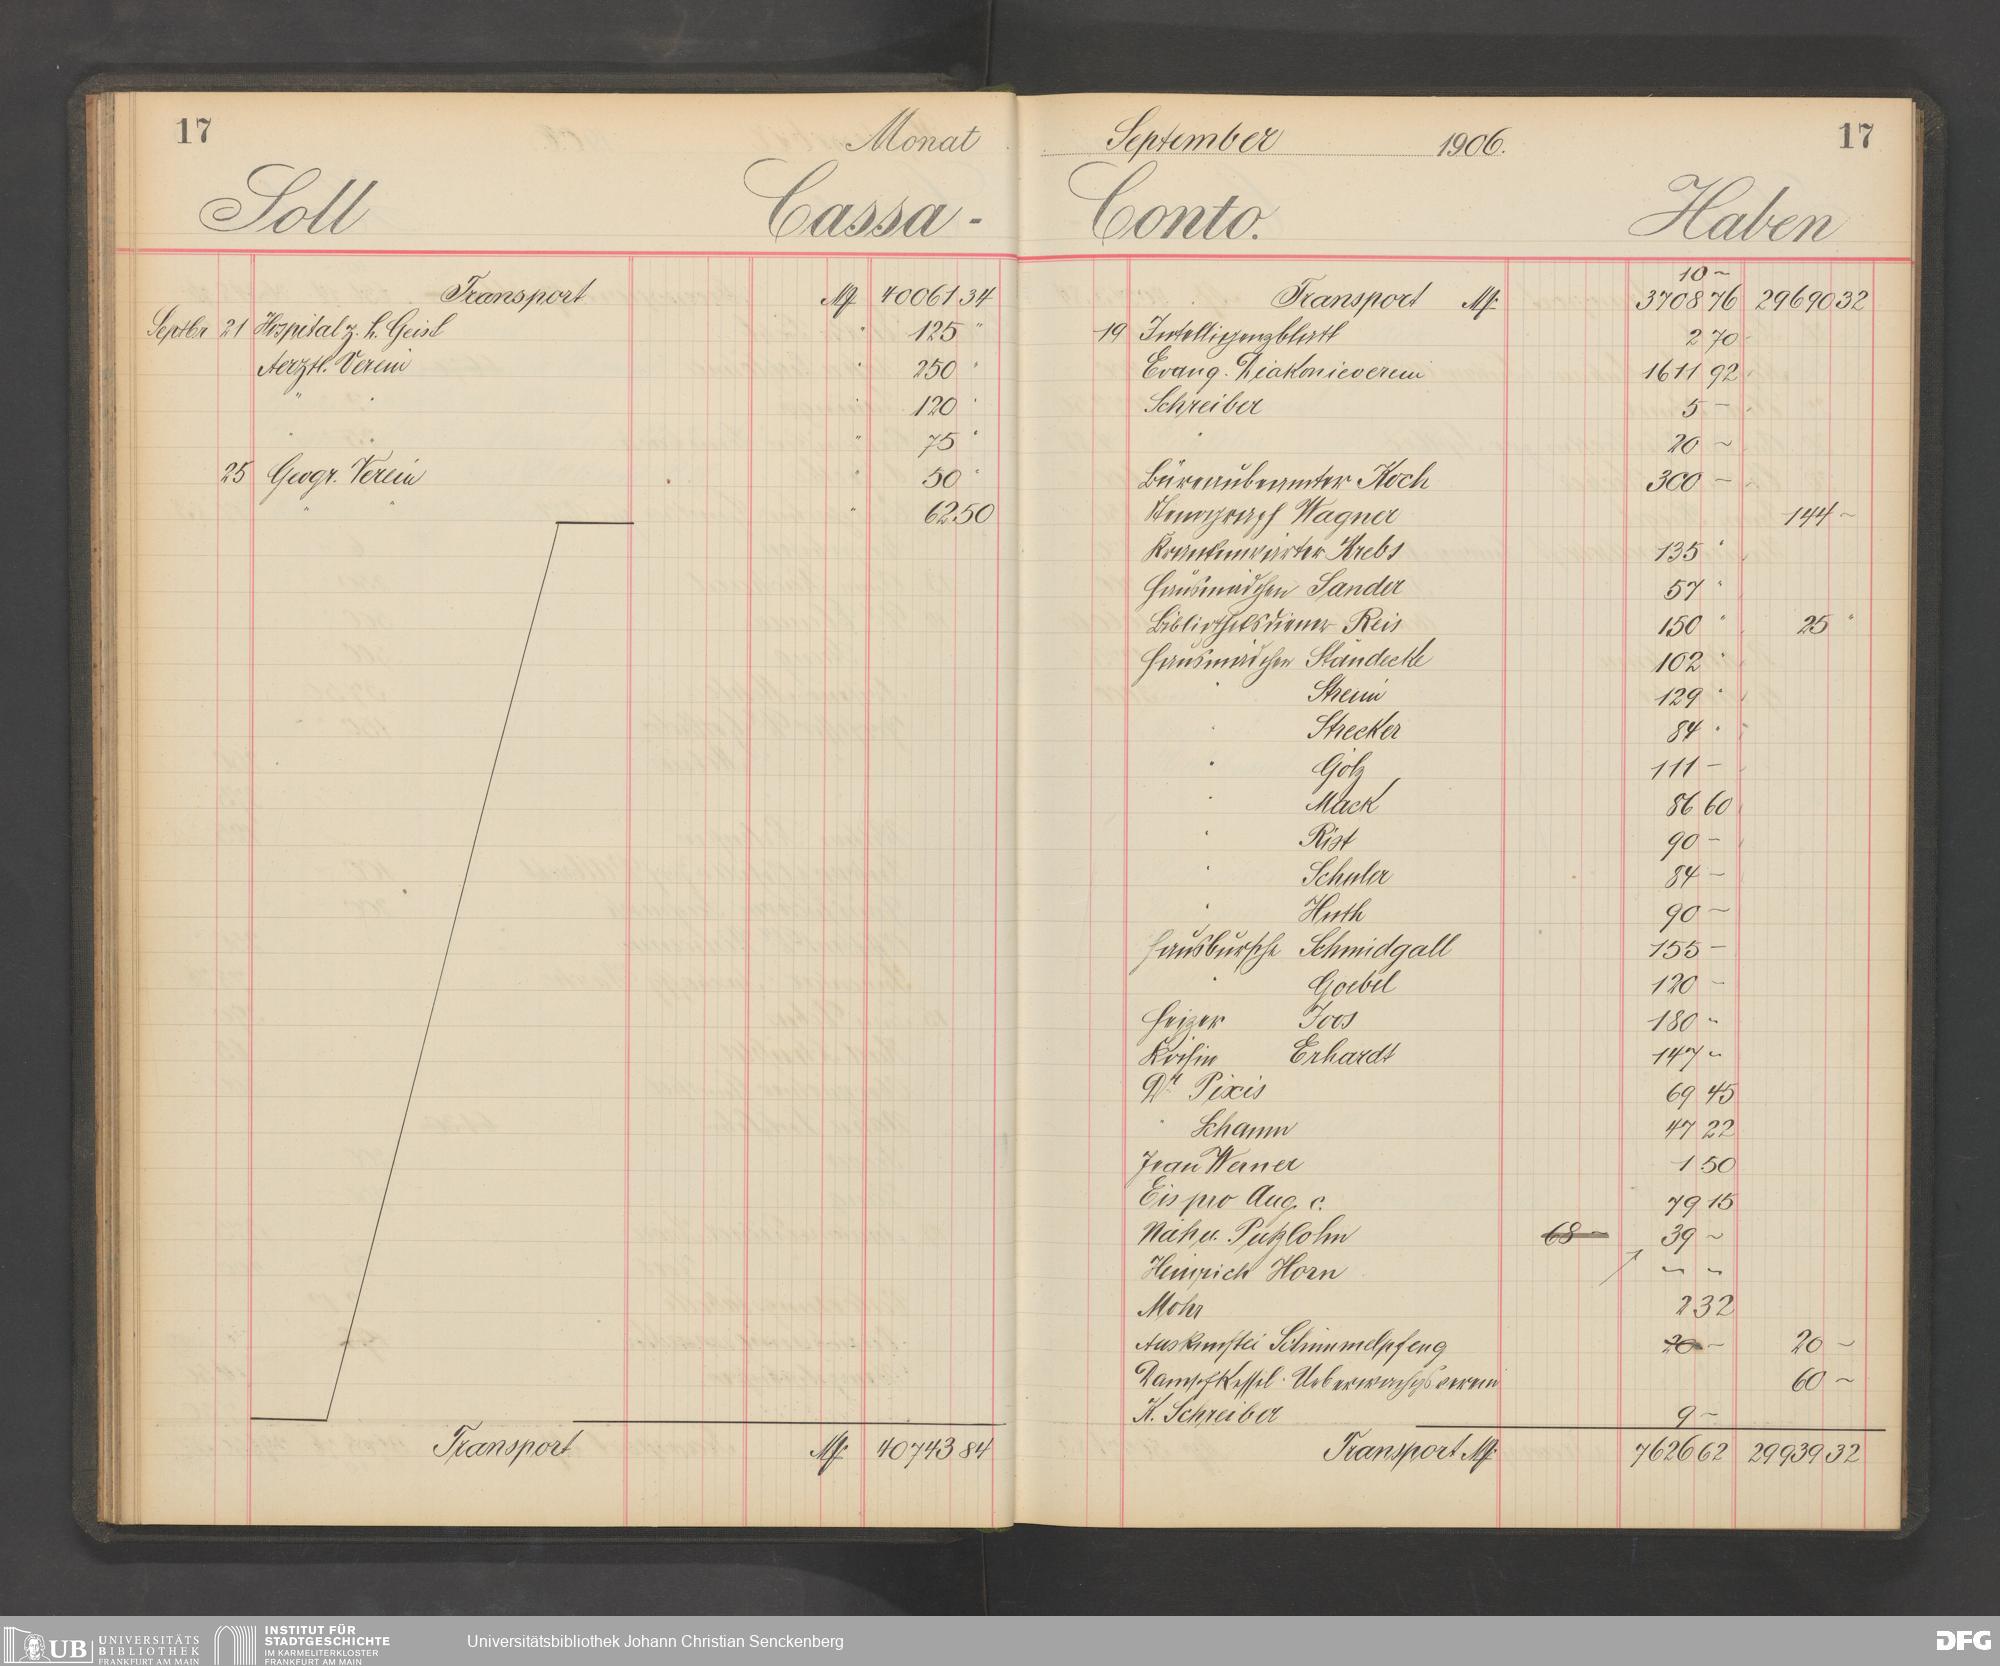 17
Monat
Soll
Cassa-
Transport M 40061 34
Septbr 21 Hospital z. h. Geist " 125 "
Aerztl. Verein " 250 "
" " " 120 "
" " " 75 "
25 Geogr. Verein " 50 "
" " " 62 50
Transport M 40743 84
September 1906.
17
Conto.
Haben
10 -
Transport M 3708 76 29690 32
19 Intelligenzblatt 2 70
Evang. Diakonieverein 1611 92
Schreiber 5 -
" 20 -
Büreaubeamter Koch 300 -
Stenograph Wagner 144 -
Krankenwärter Krebs 135 "
Hausmädchen Sander 57 "
Bibliotheksdiener Reis 150 " 25 "
Hausmädchen Standecke 102 "
" 129 "
" Strecker 84 "
" Gölz 111 -
" Mack 86 60
" Rist 90 -
" Schuler 84 -
" Huth 90 -
Hausbursche Schmidgall 155 -
" Goebel 120 -
Heizer Joos 180 -
Köchin Erhardt 147 -
Dr. Pixis 69 45
" Schamm 47 22
Frau Werner 1 50
Eis pro Aug. c. 79 15
Näh u. Putzlohn 68 - 39 -
Heinrich Horn - -
Mohr 2 32
Auskunftei Schimmelpfeng 20 - 20 -
Dampfkessel-Ueberwachgsverein 60 -
K. Schreiber 9 -
Transport M 7626 62 29939 32
UB UNIVERSITÄTS
BIBLIOTHEK
FRANKFURT AM MAIN
INSTITUT FÜR
STADTGESCHICHTE
IM KARMELITERKLOSTER
FRANKFURT AM MAIN
Universitätsbibliothek Johann Christian Senckenberg
DFG